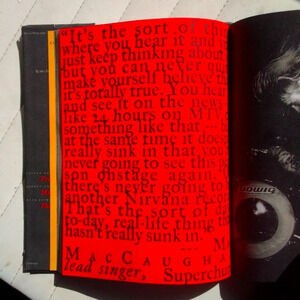 "It's the sort of thi
where you hear it and y
just keep thinking about
but you can never qu
make yourself believe th
it's totally true. You hear
and see it on the news
like 24 hours on MTV,
something like that
at the same time it does
really sink in that you
never going to see this pe
son onstage again.
there's never going to
another Nirvana recor
That's the sort of da
to-day, real-life thing th
hasn't really sunk in.
M
MACCAUGHA
lead singer, Superchu